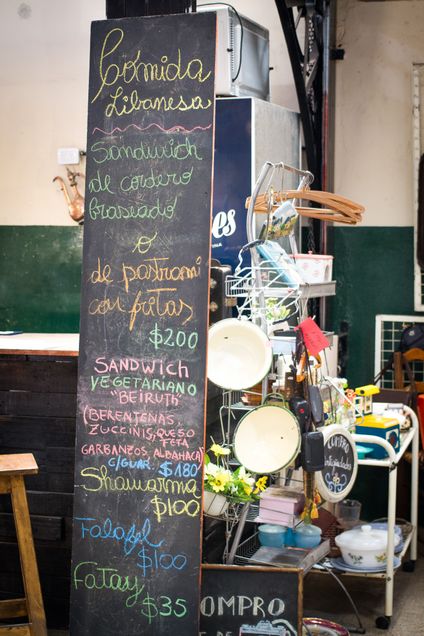 Cómida
Libanesa
Sandwich
de cordero
braseado
o
de pastrami
con fritas
$200
SANDWICH
VEGETARIANO
"BEIRUTH"
(BERENTENAS,
ZUCCINIS, QUESO
FETA
GARBANZOS, ALBAHACA)
C/GUAR. $180
Shawarma
$100
Falafel
$100
Fatay
$35
es
COMPRO
antigüedades
OMPRO